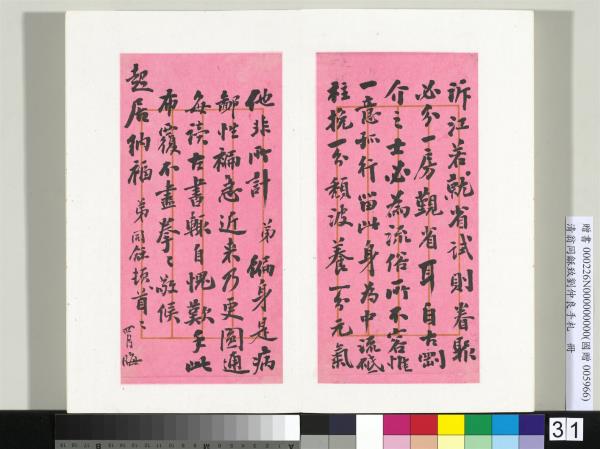 泝江若就省試則眷聚
必分一房覲省耳自古剛
介之士必為流俗所不容惟
一意孤行留此身為中流砥
柱挽一分頹波養一分元氣
他非所計 弟徧身是病
鄙性褊急近來乃更圓通
每讀古書輒自愧歎手此
布覆不盡拳〻敬候
起居納福 弟同龢頓首〻
四月晦
贈書 000226N000000000(國贈 005966)
清翁同龢致劉仲良手札 冊
31